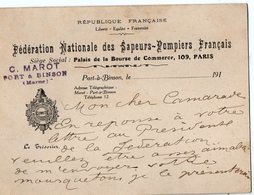 RÉPUBLIQUE FRANÇAISE
Liberté - Égalité - Fraternité
Fédération Nationale des Sapeurs-Pompiers Français
Siège Social : Palais de la Bourse de Commerce, 109, PARIS
C. MAROT
PORT A BINSON
(Marne)
Port-à-Binson, le 191
Adresse Télégraphique :
Marot : Port-à-Binson
Téléphone 12
Mon cher Camarade
En réponse à votre
lettre au Président
de la Fédération
veuillez être assez aimable
de m'envoyer votre
le présenterai